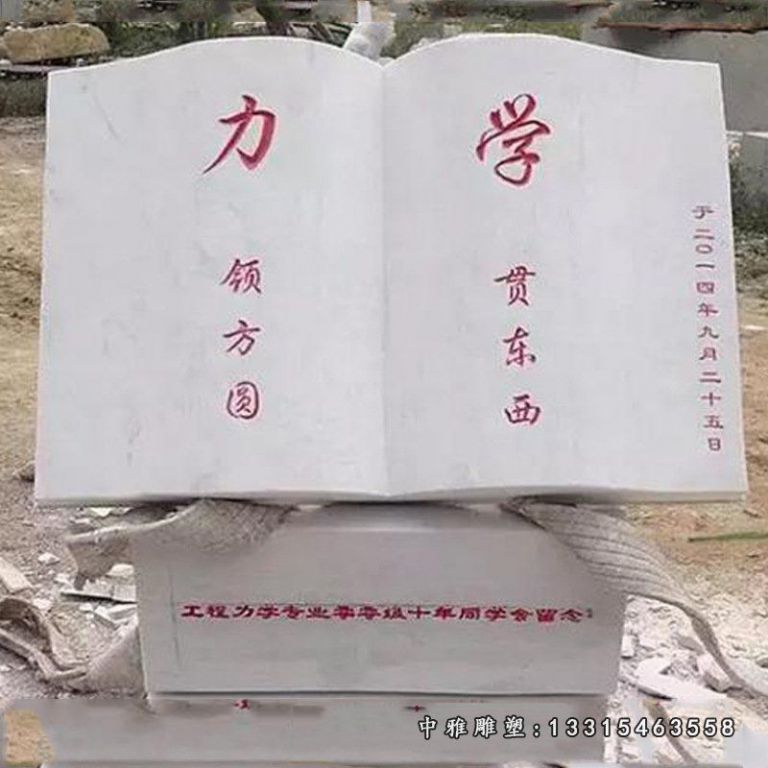 力 学
领方圆
贯东西
于二〇一四年九月二十五日
工程力学专业零零级十年同学会留念
中雅雕塑:13315463558